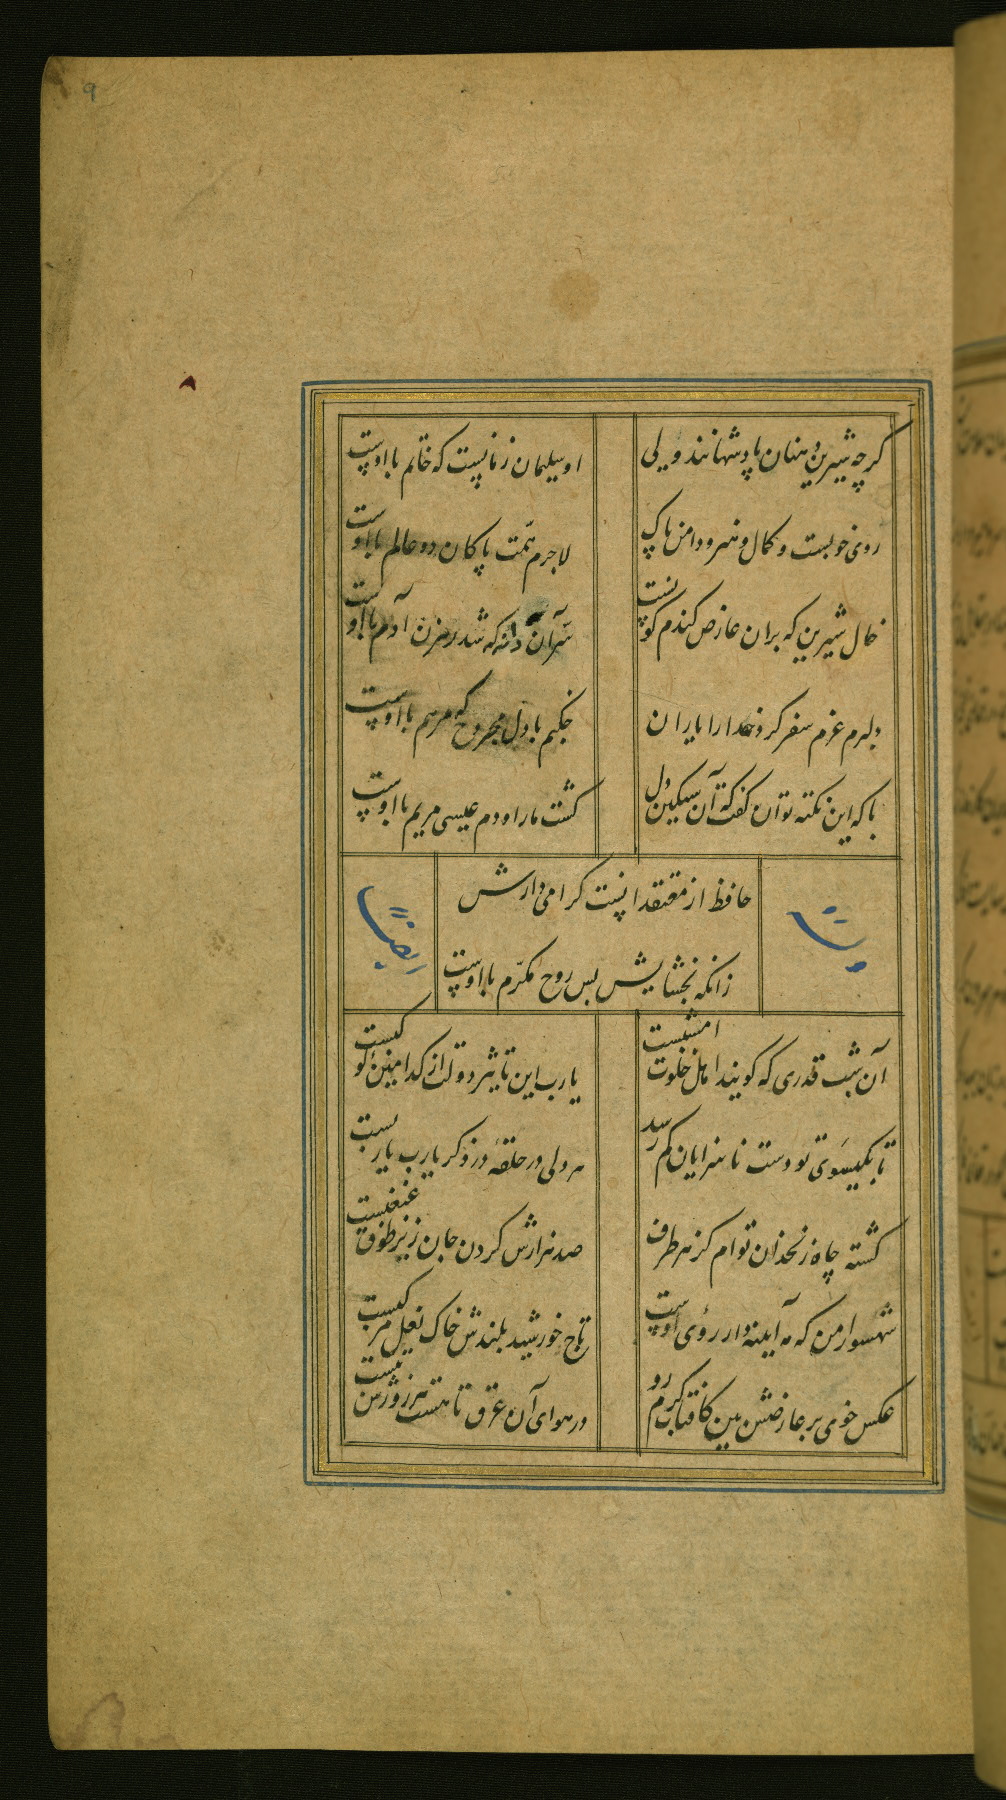 ۹
گرچه شیرین دهنان پادشهانند ولی
او سلیمان زمانیست که خاتم با اوست
روی خوبست و کمال و هنر و دامن پاک
لاجرم همت پاکان دو عالم با اوست
خال شیرین که بران عارض گندم گونست
سر آن دانه که شد رهزن آدم با اوست
دلبرم عزم سفر کرد خدا را یاران
چکنم با دل مجروح که مرهم با اوست
با که این نکته توان گفت که آن سنگین دل
کشت ما را و دم عیسی مریم با اوست
حافظ از معتقدانست گرامی دارش
زانکه بخشایش بس روح مکرم با اوست
وله
ایضا
آن شب قدری که گویند اهل خلوت امشبست
یا رب این تاثیر دولت از کدامین کوکبست
تا بگیسوی تو دست ناسزایان کم رسد
هر دلی در حلقه در ذکر یا رب یا ربست
کشته چاه زنخدان توام کز هر طرف
صد هزارش گردن جان زیر طوق غبغبست
شهسوار من که مه آیینه‌دار روی اوست
تاج خورشید بلندش خاک نعل مرکبست
عکس خوی بر عارضش بین کافتاب گرم رو
در هوای آن عرق تا هست هر روزش تبست